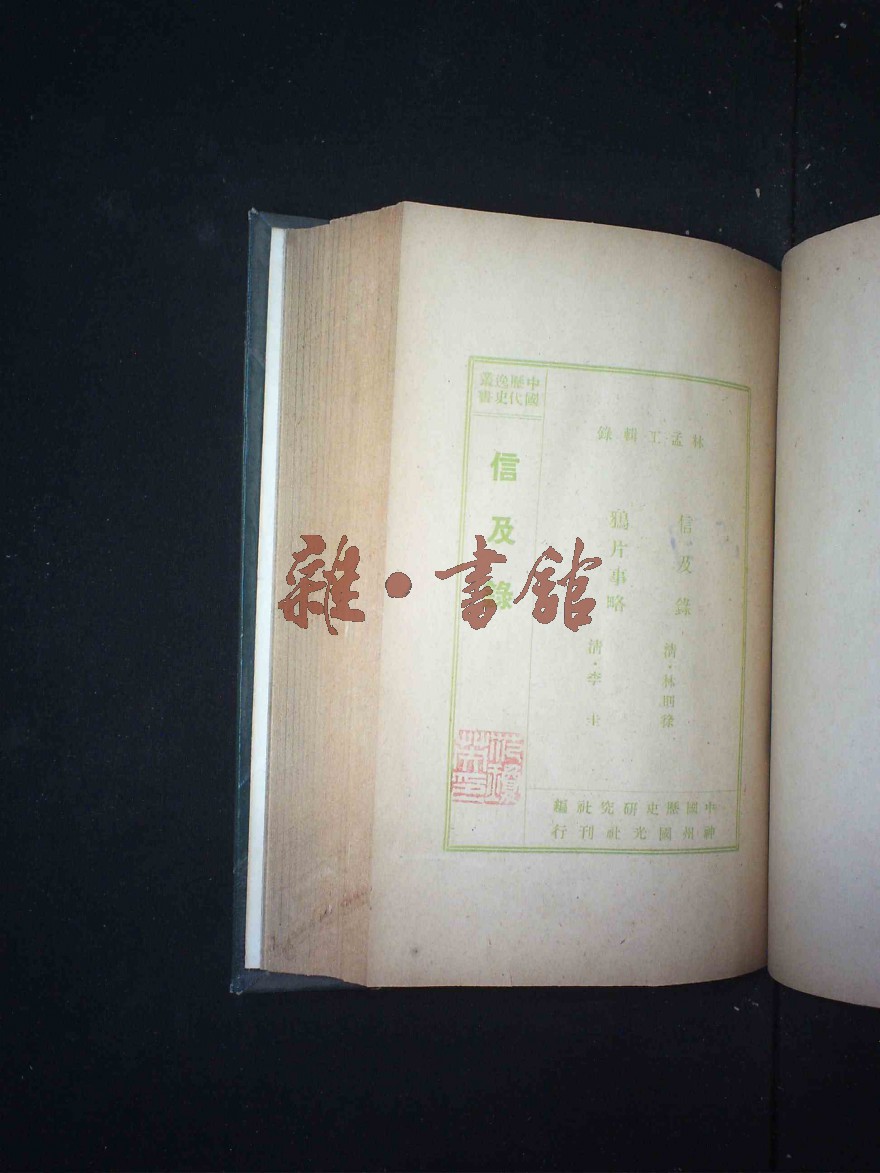 中國歷代逸史叢書
林孟工輯錄
信及錄 清·林則徐
鴉片事略 清·李圭
信及錄
中國歷史研究社編
神州國光社刊行
雜·書館